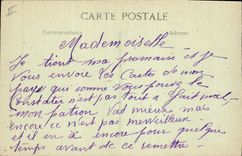 II
CARTE POSTALE
Correspondance
Adresse
Mademoiselle
Je tiens ma promesse et je
vous envoie les Cartes de mon
pays qui comme vous pouvez le
Constater n'est pas tout à fait mal
mon patron va mieux mais
encore ce n'est pas merveilleux
il en a encore pour quelque
temps avant de ce remettre